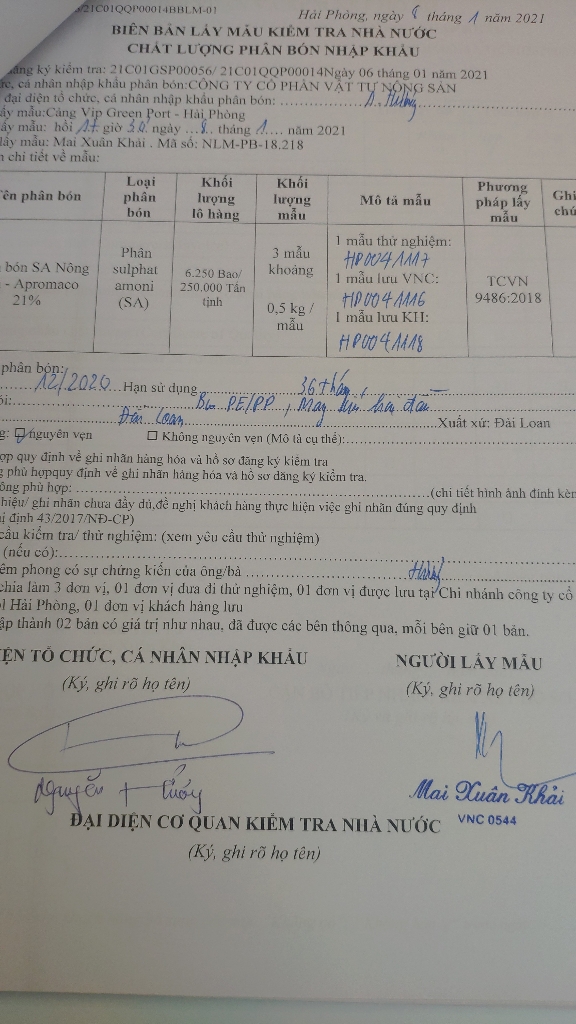 /21C01QQP00014BBLM-01
Hải Phòng, ngày 8 tháng 1 năm 2021
BIÊN BẢN LẤY MẪU KIỂM TRA NHÀ NƯỚC
CHẤT LƯỢNG PHÂN BÓN NHẬP KHẨU
đăng ký kiểm tra: 21C01GSP00056/ 21C01QQP00014Ngày 06 tháng 01 năm 2021
ức, cá nhân nhập khẩu phân bón:CÔNG TY CỔ PHẦN VẬT TƯ NÔNG SẢN
đại diện tổ chức, cá nhân nhập khẩu phân bón:
lấy mẫu:Cảng Vip Green Port - Hải Phòng
lấy mẫu: hồi 17 giờ 30 ngày 8 tháng 1 năm 2021
lấy mẫu: Mai Xuân Khải . Mã số: NLM-PB-18.218
n chi tiết về mẫu:
Tên phân bón
Loại phân bón
Khối lượng lô hàng
Khối lượng mẫu
Mô tả mẫu
Phương pháp lấy mẫu
Ghi chú
bón SA Nông
- Apromaco
21%
Phân sulphat amoni (SA)
6.250 Bao/ 250.000 Tấn tịnh
3 mẫu khoảng 0,5 kg / mẫu
1 mẫu thử nghiệm:
HP004/1117
1 mẫu lưu VNC:
HP004/1116
1 mẫu lưu KH:
HP004/1118
TCVN 9486:2018
phân bón:
12/2020 Hạn sử dụng 36 tháng
ói: Bao PE/PP, May kín hai đầu
Đài Loan Xuất xứ: Đài Loan
g: nguyên vẹn Không nguyên vẹn (Mô tả cụ thể):
ợp quy định về ghi nhãn hàng hóa và hồ sơ đăng ký kiểm tra
g phù hợpquy định về ghi nhãn hàng hóa và hồ sơ đăng ký kiểm tra.
ông phù hợp: (chi tiết hình ảnh đính kèm
hiệu/ ghi nhãn chưa đầy đủ,đề nghị khách hàng thực hiện việc ghi nhãn đúng quy định
ị định 43/2017/NĐ-CP)
cầu kiểm tra/ thử nghiệm: (xem yêu cầu thử nghiệm)
(nếu có):
êm phong có sự chứng kiến của ông/bà
chia làm 3 đơn vị, 01 đơn vị đưa đi thử nghiệm, 01 đơn vị được lưu tại Chi nhánh công ty cổ
ại Hải Phòng, 01 đơn vị khách hàng lưu
ập thành 02 bản có giá trị như nhau, đã được các bên thông qua, mỗi bên giữ 01 bản.
IỆN TỔ CHỨC, CÁ NHÂN NHẬP KHẨU
NGƯỜI LẤY MẪU
(Ký, ghi rõ họ tên)
(Ký, ghi rõ họ tên)
Nguyễn
Mai Xuân Khải
VNC 0544
ĐẠI DIỆN CƠ QUAN KIỂM TRA NHÀ NƯỚC
(Ký, ghi rõ họ tên)